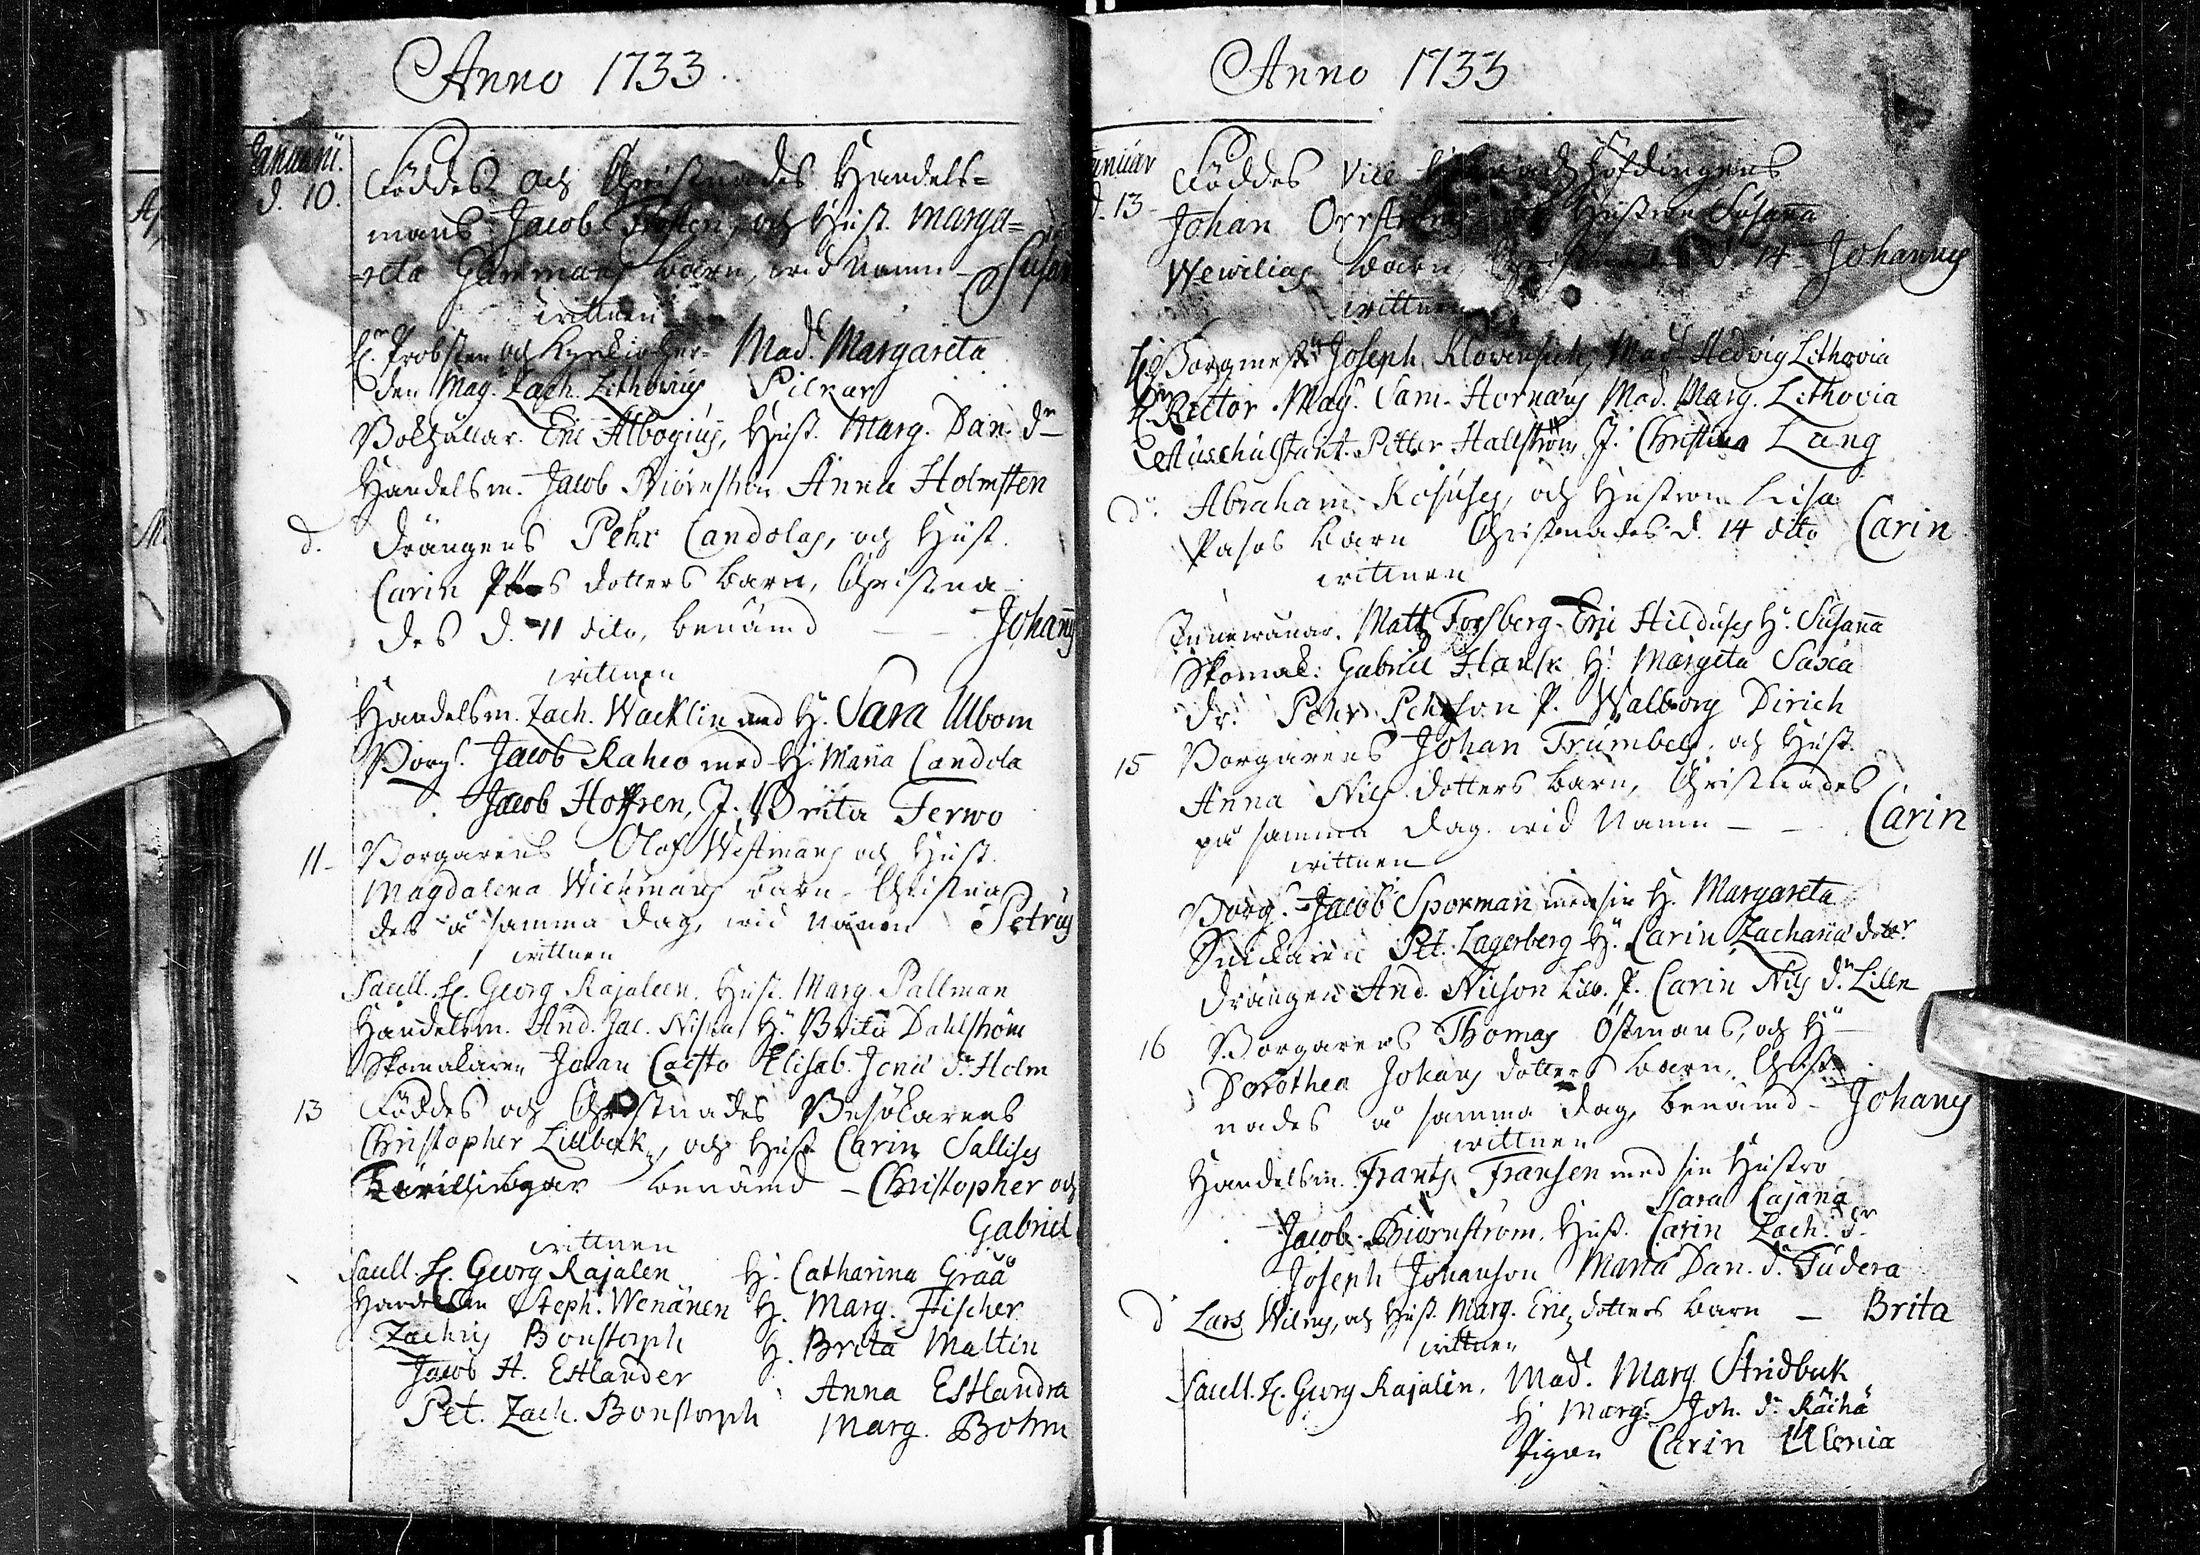 Anno 1733.
Januarii.
d. 10. Föddes och Christnades Handels=
mans Jacob Frosten, och Hust. Marga=
reta Gummans barn, wid namn Susan
wittnen
H. Probsten och Kyrckioher= Mad. Margareta
den Mag. Zach. Lithovius Pilcar
Bokhållar. Eric Albogius, Hust. Marg. Dan. dr
Handelsm. Jacob Biörnström Anna Holmsten
d. drängens Pehr Candolas, och Hust.
Carin dotters barn, Christna
des d. 11 dito, benämd Johans
wittnen
Handelsm. Zach. Wacklin med H. Sara Ulbom
Borg. Jacob Raheo med H. Maria Candola
Jacob Hoffren, J. Brita Terwo
11 Borgarens Olof Westmans och Hust.
Magdalena Wichmans barn Christna
des å samma dag, wid namn Petrus
wittnen
Sacell. H. Georg Kajaleen. Hust. Marg. Pallman
Handelsm. And. Jac. H. Brita Dahlström
Skomakaren Johan Casto Elisab. Jona dr Holm
13 Föddes och Christnades Besökarens
Christopher Lillbäk, och Hust Carin Sallises
benämd - Christopher och
Gabriel
wittnen
Sacell. H. Georg Kajalen H. Catharina Gråå
Handelsm Steph. Wenänen H. Marg. Fischer
Zachris Bonstorph H. Brita Maltin
Jacob H. Estlander Anna Estlandra
Pet. Zach. Bonstorph Marg. Bohm
Anno 1733
Januar
d. 13 Föddes Vice Häradzhöfdingens
Johan Hustrun Susana
Wewilias barn d. 14 Johannes
wittnen
H. Borgmest. Joseph Mad. Hedvig Lithovia
H. Rector Mag. Sam. Hornæus Mad. Marg. Lithovia
Petter Hallström J. Christina Lang
d. Abraham och Hustrun Lisa
Pasos barn Christnades d. 14 dito Carin
wittnen
Matts Forsberg Eric Hilduses H. Susana
Skomak. Gabriel H. Margeta Saxa
dr. Pehr Pehrson P. Walborg Dirich
15 Borgarens Johan Trumbels, och Hust.
Anna Nils dotters barn, Christnades
på samma dag wid namn Carin
wittnen
Borg. Jacob Sporman med sin H. Margareta
Pet. Lagerberg H. Carin Zacharia dotr
drängen And. Nilson P. Carin Nils dr Lilln
16 Borgarens Thomas Östmans, och H
Dorothea Johans dotters barn, Christ
nades å samma dag, benämd - Johans
wittnen
Handelsm. Frants Fransen med sin Hustro
Sara Cajana
Jacob Biörnström, Hust. Carin Zach. dr
Joseph Johanson Maria Dan. dr Tudera
d Lars och Hust. Marg. Erics dotters barn - Brita
wittnen
Sacell. H. Georg Kajalen, Mad. Marg. Stridbäk
H. Marg. Joh. dr Räihä
Pigan Carin Ulonia